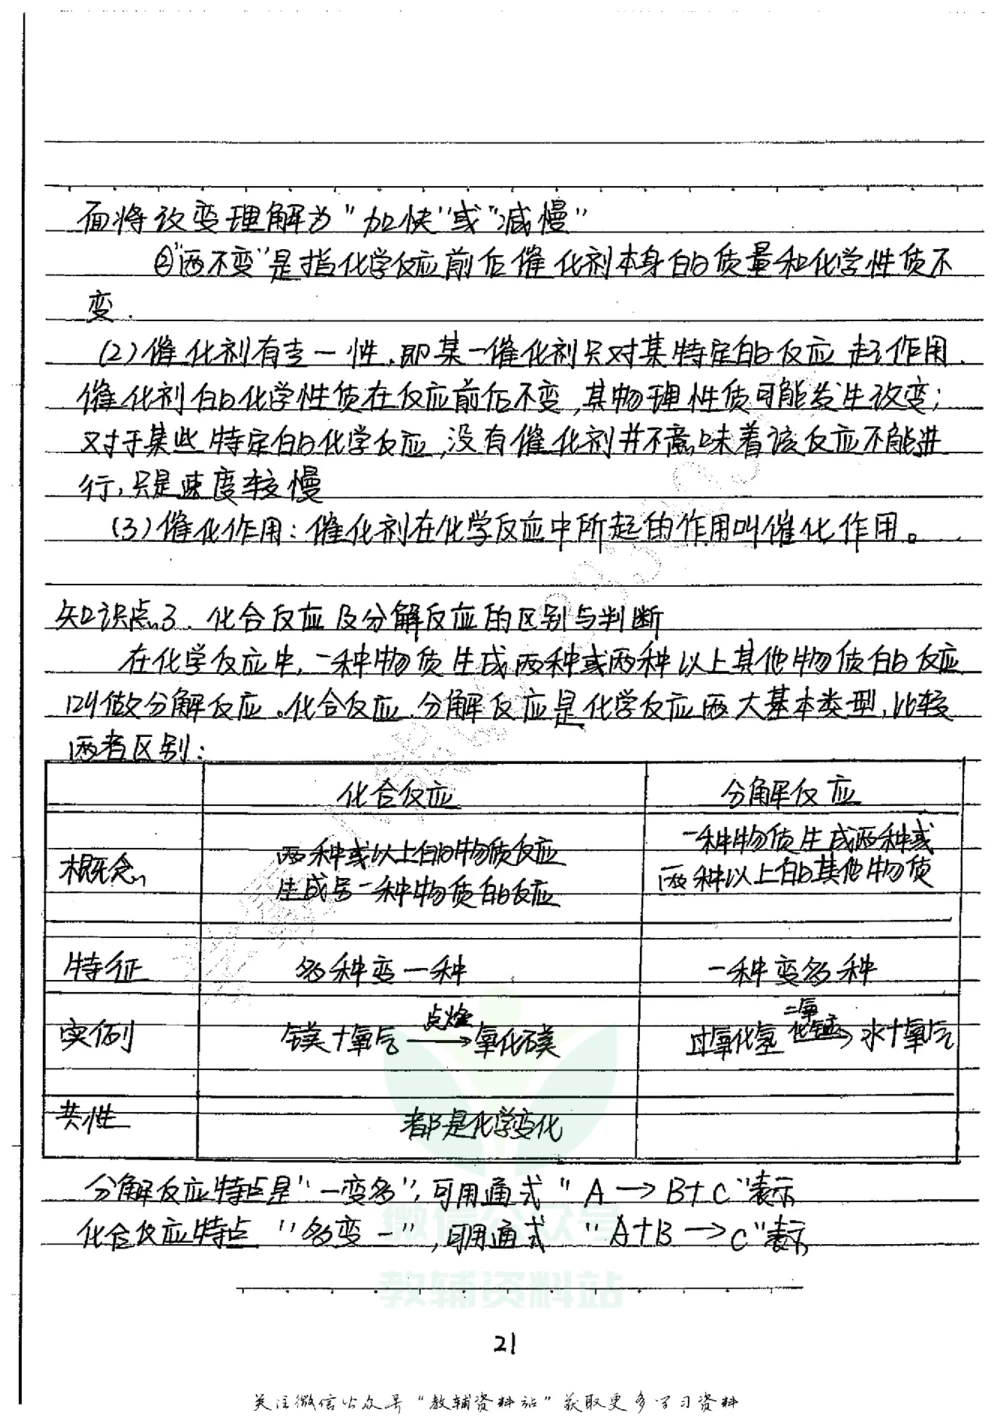 面将改变理解为"加快"或"减慢"
②"两不变"是指化学反应前后催化剂本身的质量和化学性质不
变.
(2)催化剂有专一性,即某一催化剂只对某特定的反应起作用.
催化剂的化学性质在反应前后不变,其物理性质可能发生改变;
对于某些特定的化学反应,没有催化剂并不意味着该反应不能进
行,只是速度较慢
(3)催化作用:催化剂在化学反应中所起的作用叫催化作用。
知识点3.化合反应及分解反应的区别与判断
在化学反应中,一种物质生成两种或两种以上其他物质的反应
叫做分解反应。化合反应.分解反应是化学反应两大基本类型,比较
两者区别:
化合反应 分解反应
概念 两种或以上的物质反应 生成另一种物质的反应 一种物质生成两种或 两种以上的其他物质
特征 多种变一种 一种变多种
实例 镁+氧气 点燃→ 氧化镁 过氧化氢 二氧化锰→ 水+氧气
共性 都是化学变化
分解反应特点是"一变多",可用通式"A→B+C"表示
化合反应特点"多变一",可用通式"A+B→C"表示
微信公众号
教辅资料站
21
关注微信公众号"教辅资料站"获取更多学习资料